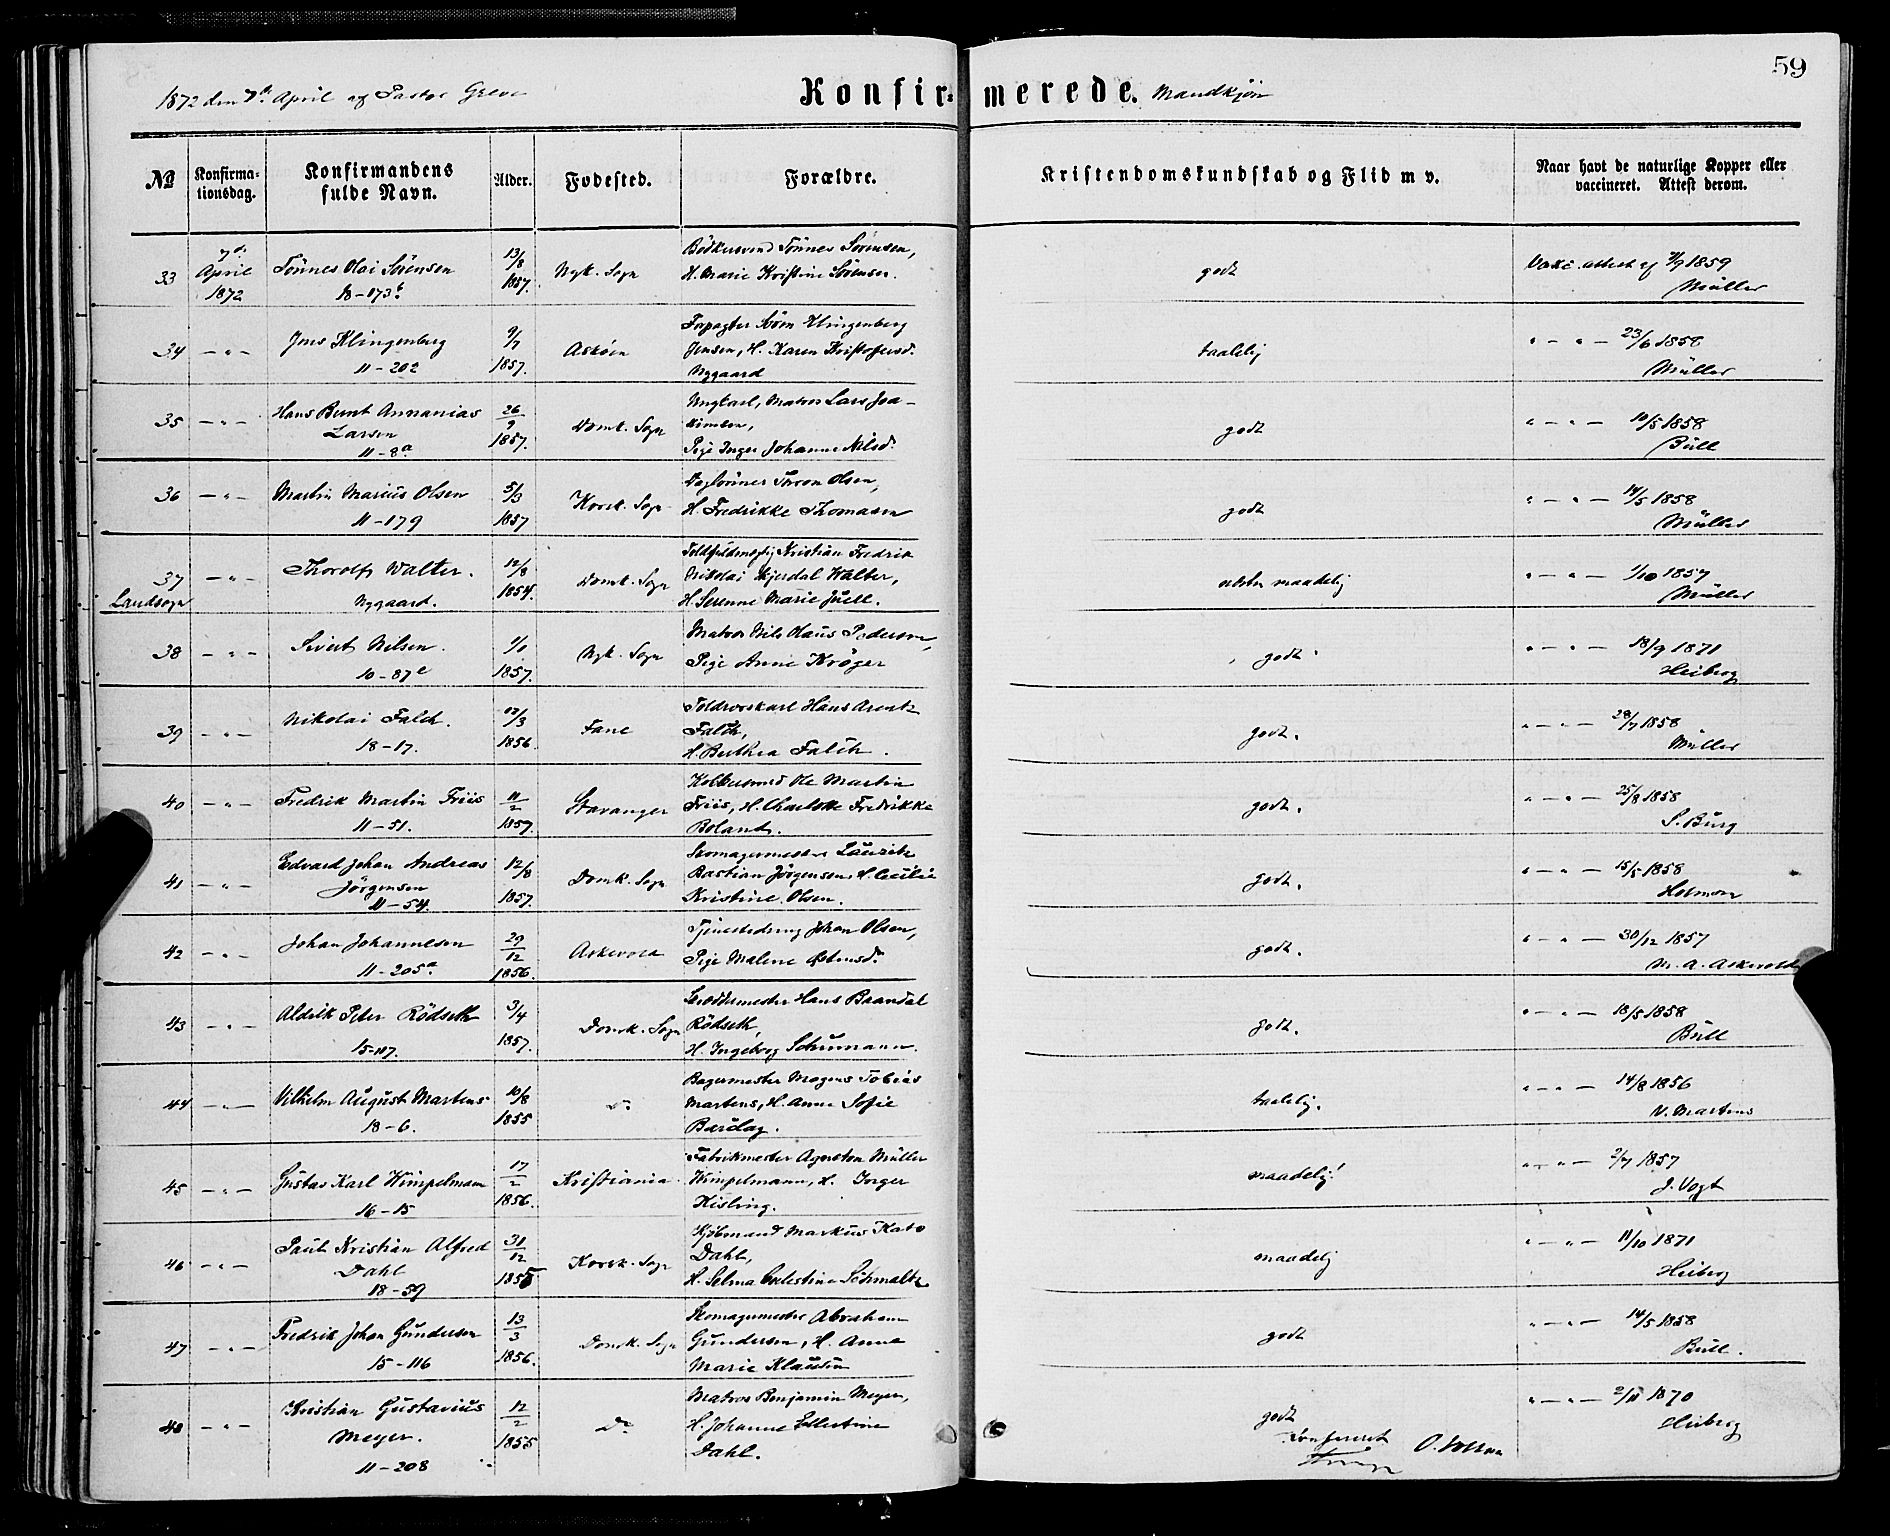 59
1872 den 7de April af Pastor Greve
Konfirmerede. Mandkjøn
No
Konfirmationsdag.
Konfirmandens fulde Navn.
Alder.
Fødested.
Forældre.
Kristendomskundskab og Flid m v.
Naar havt de naturlige Kopper eller vaccineret. Attest derom.
33 7de April 1872 Tönnes Olai Sörensen 18-173b 13/8 1857. Nyk. Sogn Bödkersvend Tönnes Sörensen, H. Marie Kristine Sörensen. godt Vaxc. attest af 7/9 1859 Müller
34 — " — Jens Klingenberg 11-202 9/7 1857. Askøen Forpagter Sörn Klingenberg Jensen, H. Karen Kristofersd. Nygaard taalelig " — " — 23/6 1858 Müller
35 — " — Hans Bernt Annanias Larsen 11-8a 26/9 1857. Domk. Sogn Ungkarl, Matros Lars Joakimsen, Pige Inger Johanne Nilsd. godt " — " — 10/5 1858 Büll
36 — " — Martin Marius Olsen 11-179 5/3 1857 Korsk. Sogn Dagl­ønner Thron Olsen, H. Fredrikke Thomasen godt " — " — 14/5 1858 Müller
37 Landsogn — " — Thorolf Walter. Nygaard. 12/8 1854. Domk. Sogn Toldfuldmægtig Kristian Fredrik Nikolai Walter, H. Serenne Marie Juell. maadelig " — " — 1/10 1857 Müller
38 — " — Sivert Nilsen. 10-87e 1/1 1857. Nyk. Sogn Matros Nils Olaus Pedersen, Pige Anne Kröger godt " — " — 18/9 1871 Heiberg
39 — " — Nikolai Falch. 18-17. /3 1856. Fane Toldrorskarl Hans Arentz Falch, H. Berthea Falch. godt. " — " — 28/7 1858 Müller
40 — " — Fredrik Martin Friis 11-51. 11/2 1857. Stavanger Ole Martin Friis, H. Charlotte Fredrikke Boland. godt. " — " — 25/8 1858 S. Burg
41 — " — Edvard Johan Andreas Jörgensen 11-54. 12/8 1857. Domk. Sogn Skomagermester Lauritz Bastian Jörgensen, H. Cecilie Kristine Olsen. godt. " — " — 15/5 1858
42 — " — Johan Johannesen 11-205a. 29/12 1856. Askevold Tjenestedreng Johan Olsen, Pige Malene godt. " — " — 30/12 1857 M. A. Askevold
43 — " — Aldrik Peter Rödseth 15-117. 3/4 1857. Domk. Sogn Skræddermester Hans Baandal Rödseth, H. Ingeborg Schumann. godt. " — " — 18/5 1858 Büll
44 — " — Vilhelm August Martens 18-6. 10/8 1855 Do Bagermester Mogens Tobias Martens, H. Anne Sofie Bardag. taalelig. " — " — 14/8 1856 V. Martens
45 — " — Gustav Karl Wimpelmann 16-15 17/2 1856. Kristiania Fabrikmester Agerton Müller Wimpelmann, H. Inger Kisling. maadelig! " — " — 2/7 1857 J. Vogt
46 — " — Paul Kristian Alfred Dahl 18-59 31/12 1855 Korsk. Sogn Kjøbmand Markus Kato Dahl, H. Selma Celestine Schmaltz maadelig " — " — 11/10 1871 Heiberg
47 — " — Fredrik Johan Gundersen 15-116 13/3 1856. Domk. Sogn Skomagermester Abraham Gundersen, H. Anne Marie Klausen godt " — " — 14/5 1858 Büll.
48 — " — Kristian Gustavius Meyer. 11-208 12/2 1855 Do Matros Benjamin Meyer, H. Johanne Ellertine Dahl. godt " — " — 2/11 1870 Heiberg
Konfereret